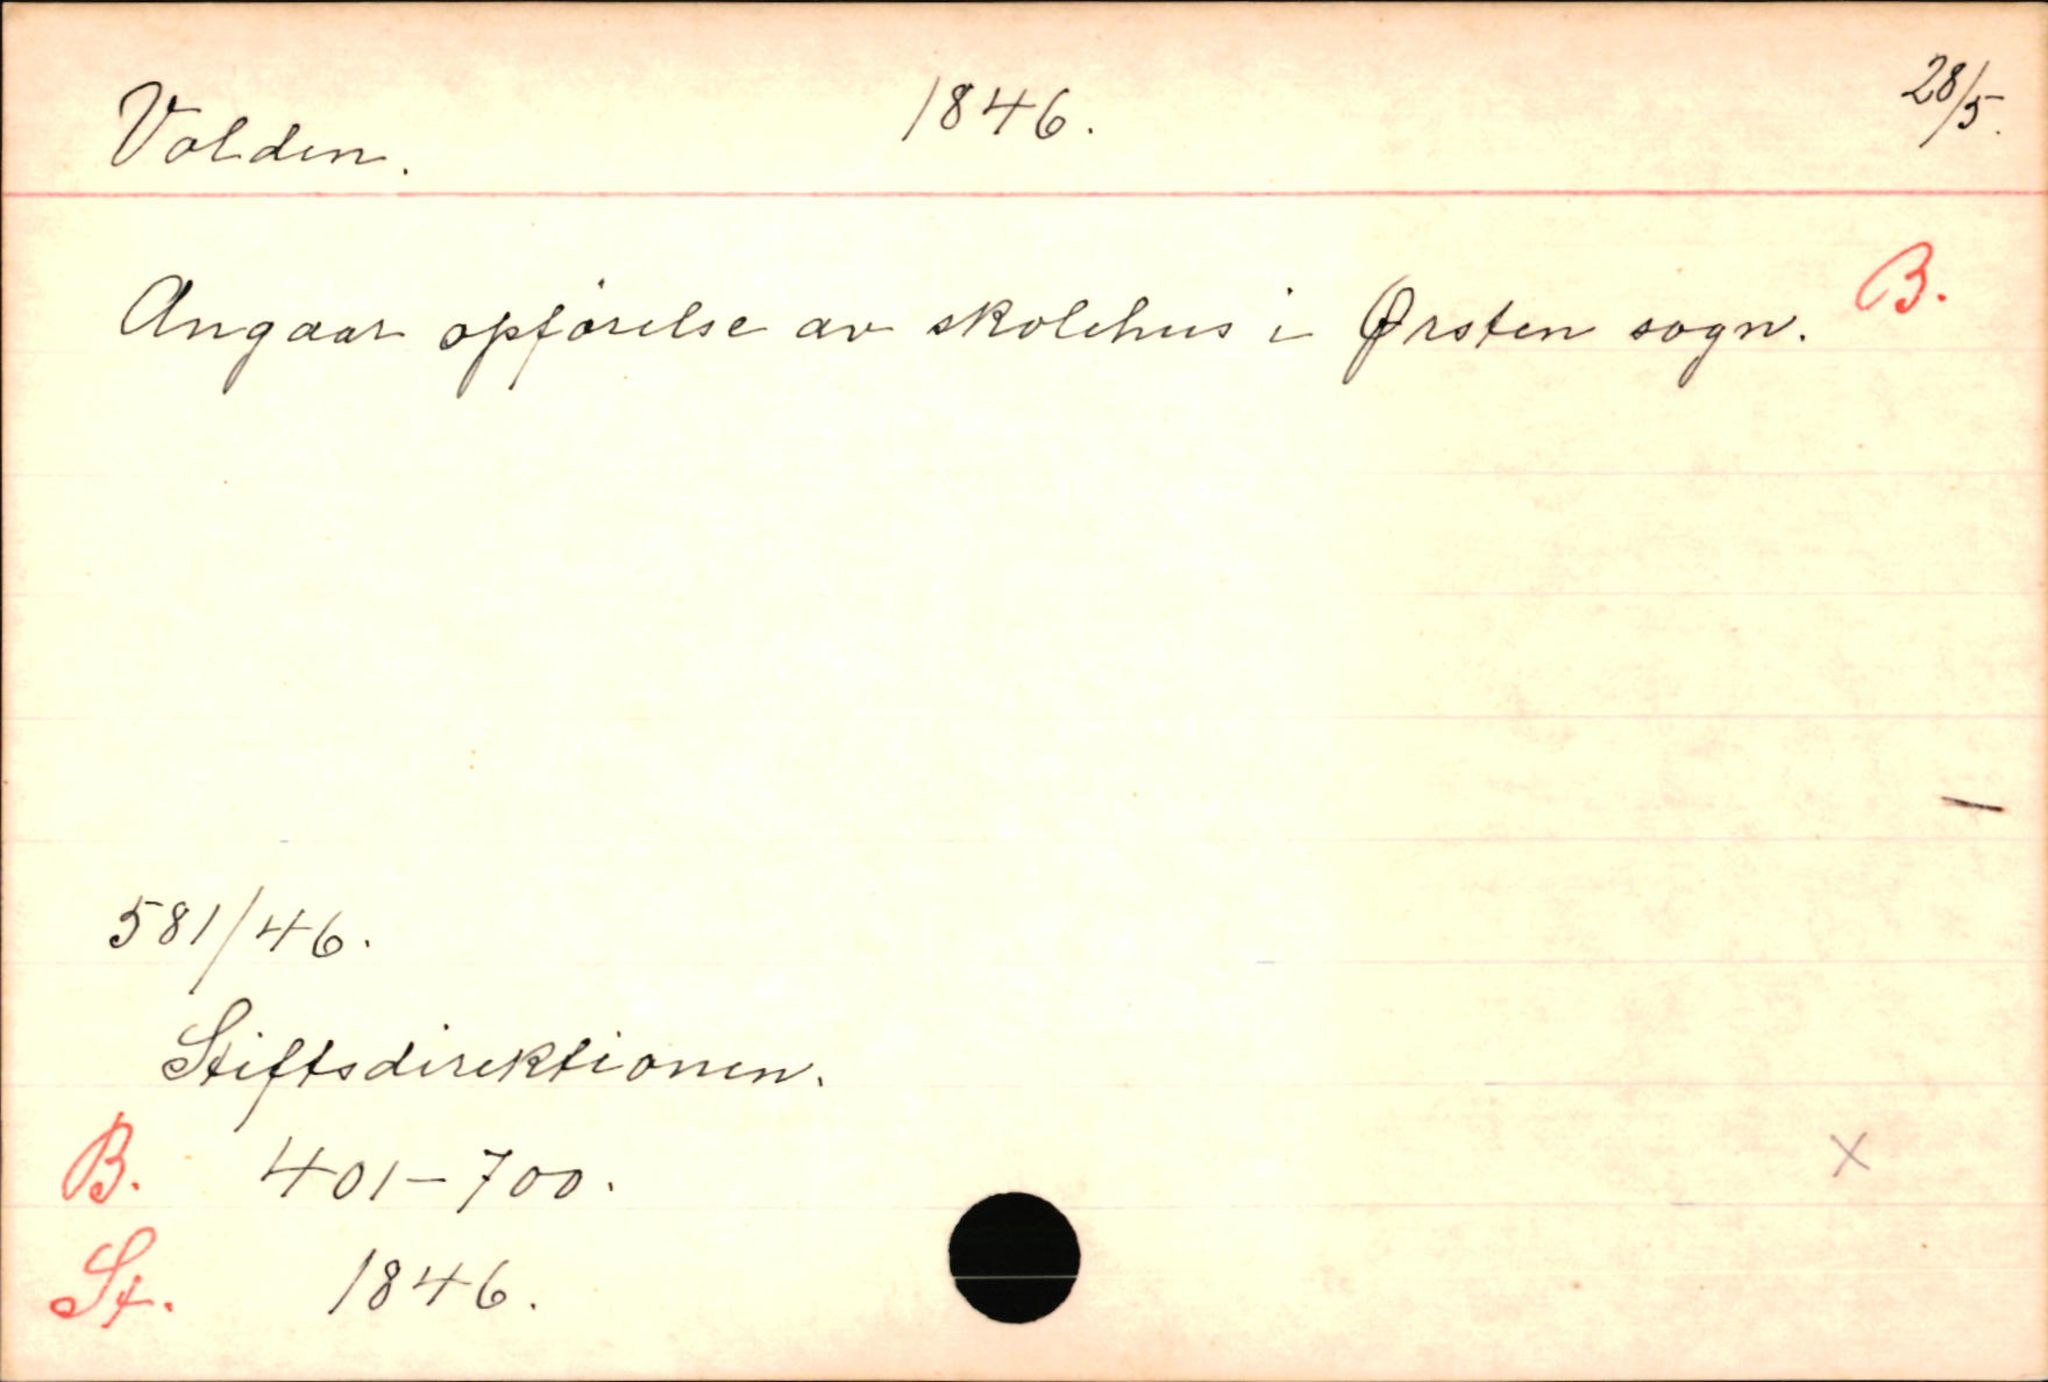 Volden. 1846. 28/5.
B.
Angaar opførelse av skolehus i Ørsten sogn.
581/46.
Stiftsdirektionen.
B. 401-700.
St. 1846.
X